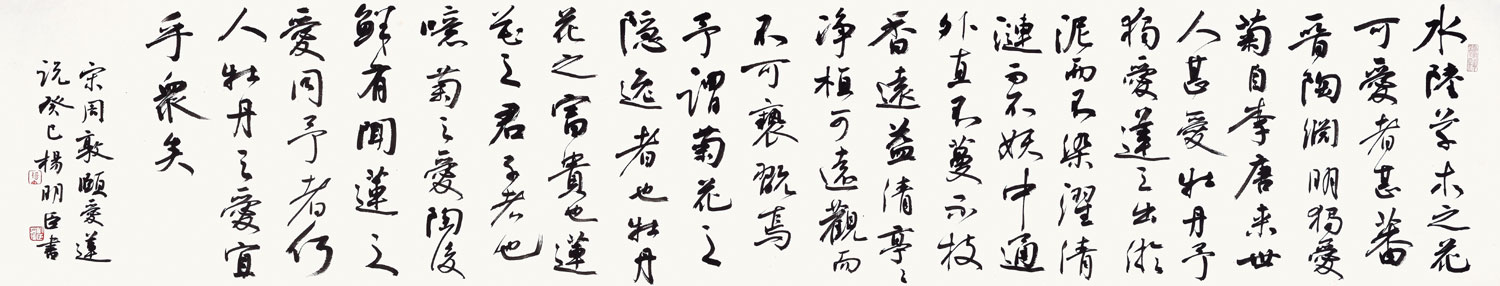 水陸草木之花
可愛者甚蕃
晋陶渊明獨愛
菊自李唐来世
人甚愛牡丹予
獨愛蓮之出淤
泥而不染濯清
漣而不妖中通
外直不蔓不枝
香遠益清亭〻
净植可遠觀而
不可褻翫焉
予謂菊花之
隐逸者也牡丹
花之富貴也蓮
花之君子者也
噫菊之愛陶後
鮮有聞蓮之
愛同予者何
人牡丹之愛宜
乎衆矣
宋周敦頤愛蓮
说癸巳楊明臣書